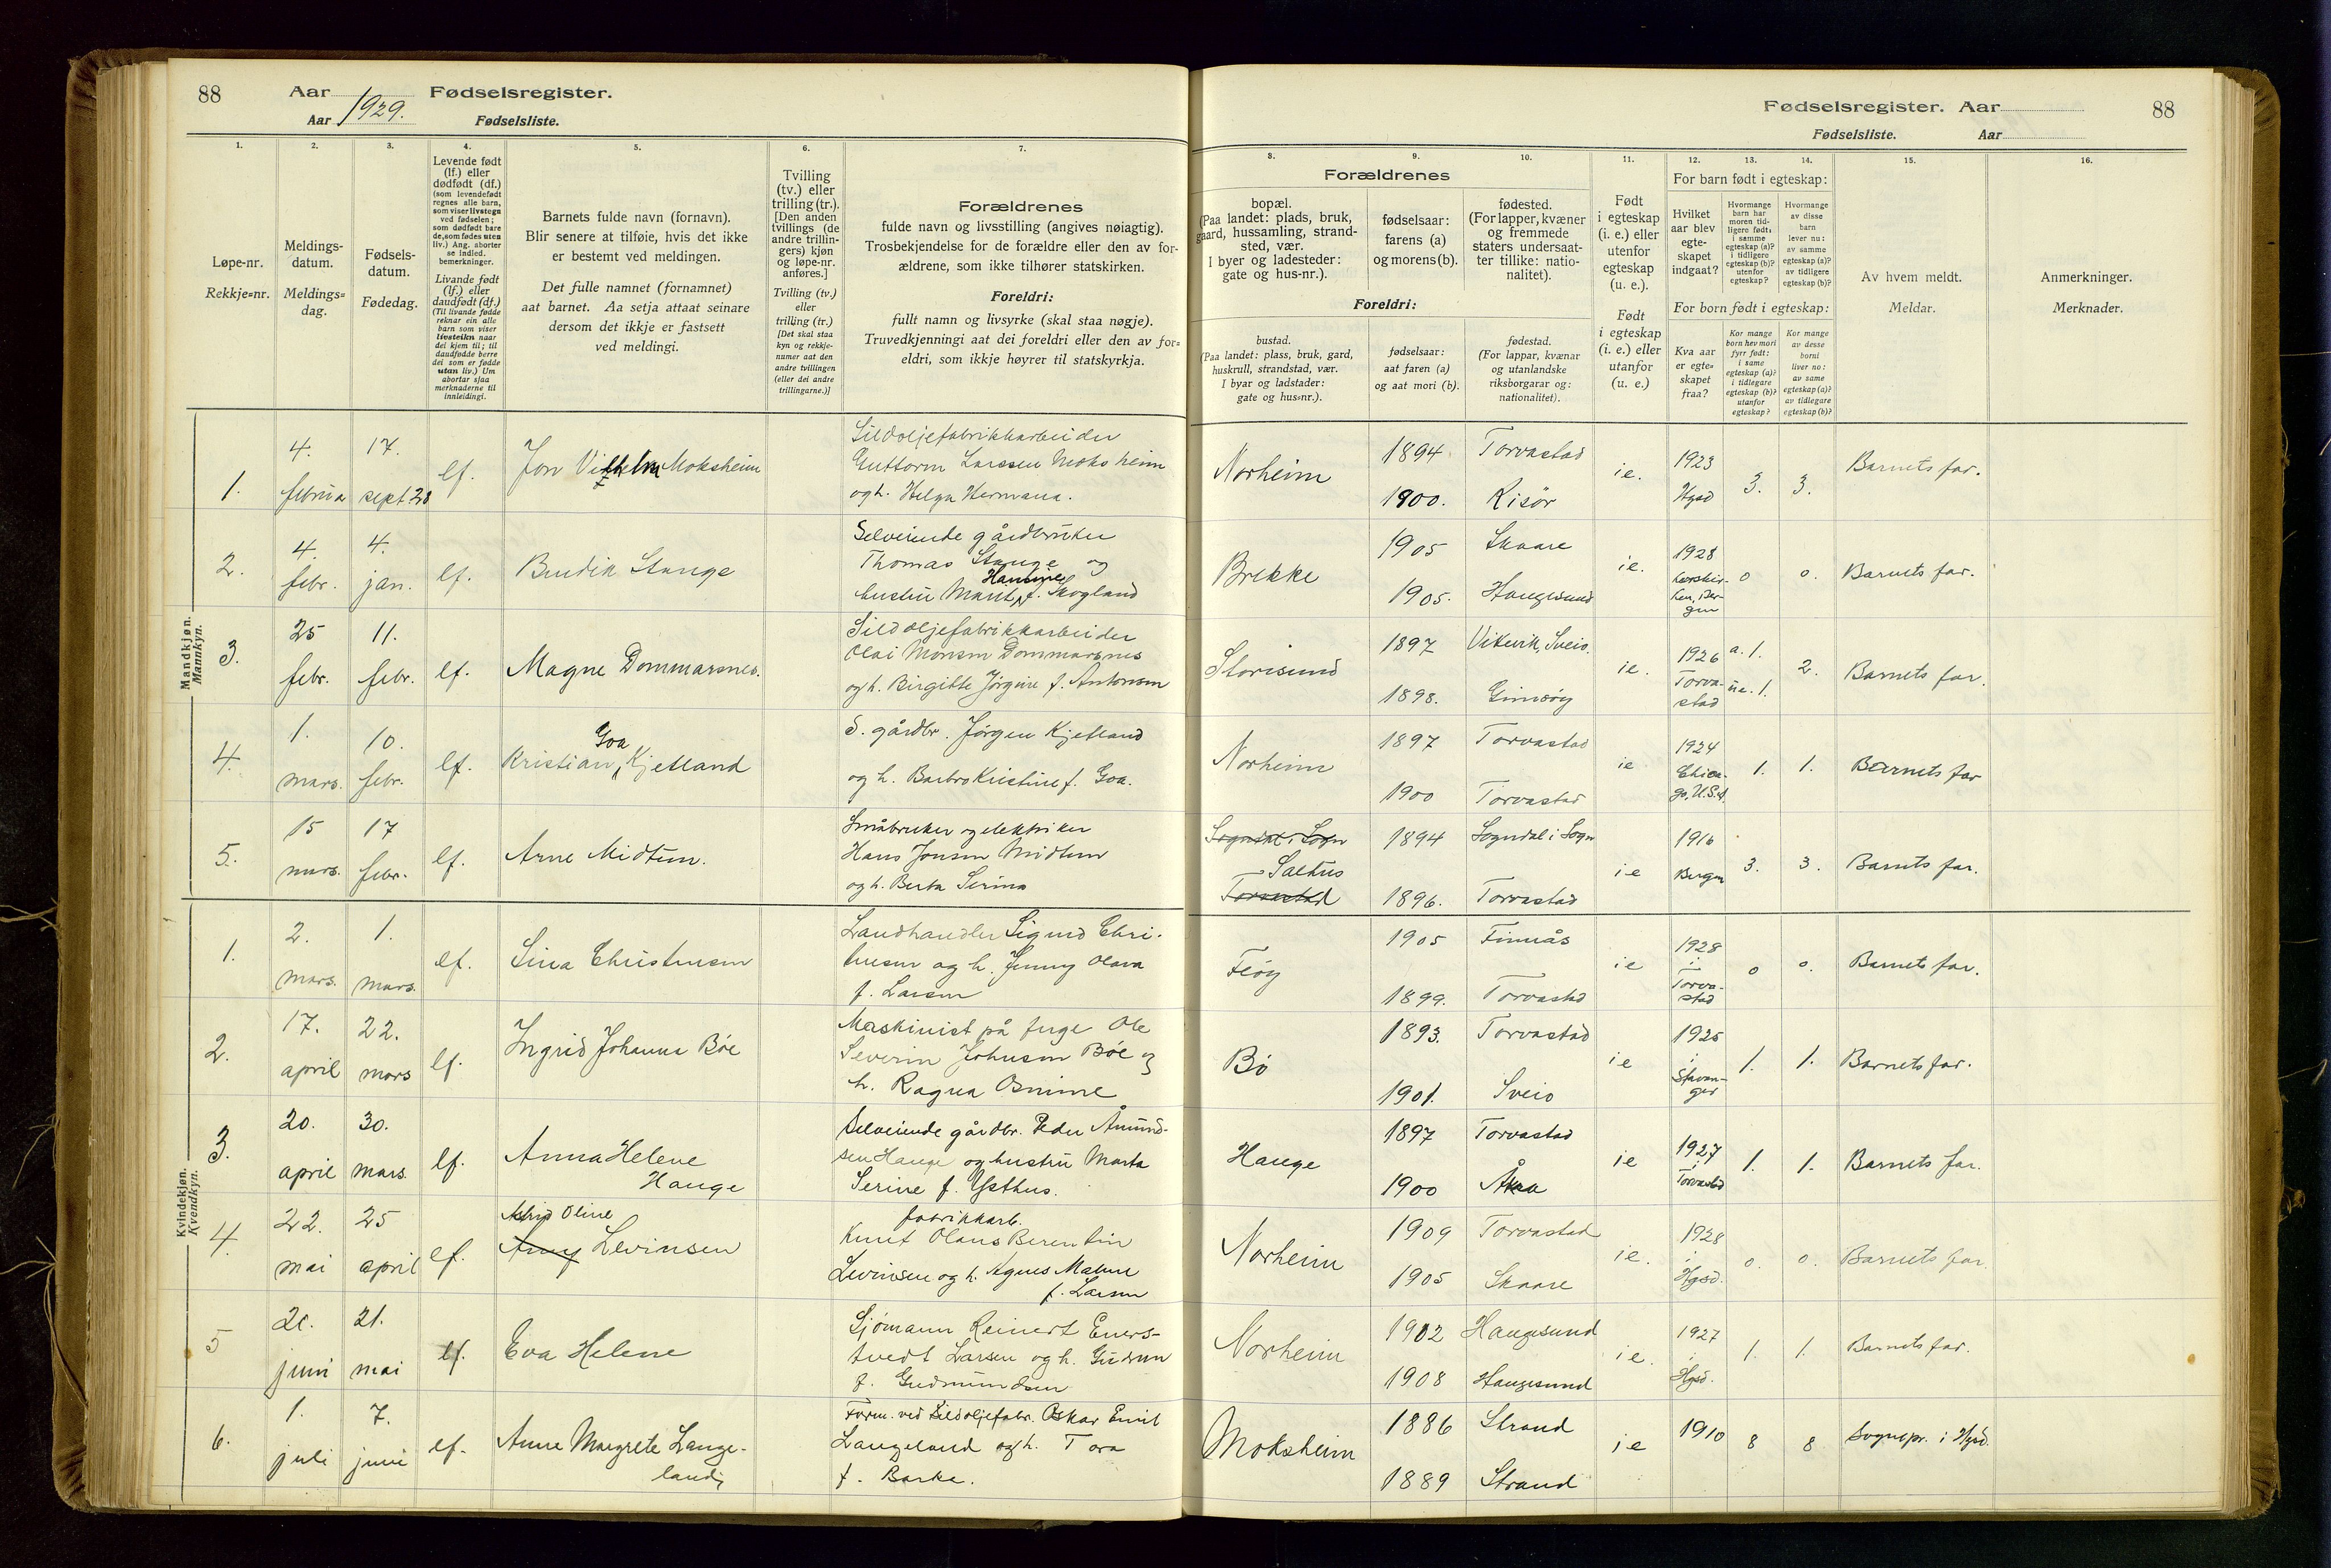 88 Aar 1929. Fødselsregister.
Aar Fødselsliste.
Fødselsregister. Aar 88
Fødselsliste. Aar
1. 2. 3. 4. 5. 6. 7. 8. 9. 10. 11. 12. 13. 14. 15. 16.
Løpe-nr.
Rekkje=nr.
Meldings-
datum.
Meldings=
dag.
Fødsels-
datum.
Fødedag.
Levende født
(lf.) eller
dødfødt (df.)
(som levendefødt
regnes alle barn,
som viser livstegn
ved fødselen;
som dødfødt bare
de, som fødes uten
liv.) Ang. aborter
se indled.
bemerkninger.
Livande født
(lf.) eller
daudfødt (df.)
(Til livande fødde
reknar ein alle
barn som viser
livsteikn naar
dei kjem til; til
daudfødde berre
dei som er fødde
utan liv.) Um
abortar sjaa
merknaderne til
innleidingi.
Barnets fulde navn (fornavn).
Blir senere at tilføie, hvis det ikke
er bestemt ved meldingen.
Det fulle namnet (fornamnet)
aat barnet. Aa setja attaat seinare
dersom det ikkje er fastsett
ved meldingi.
Tvilling
(tv.) eller
trilling (tr.).
[Den anden
tvillings (de
andre trillin-
gers) kjøn
og løpe-nr.
anføres.]
Tvilling (tv.)
eller
trilling (tr.)
[Det skal staa
kyn og rekkje-
numer aat den
andre tvillingen
(eller dei andre
trillingarne.)]
Forældrenes
fulde navn og livsstilling (angives nøiagtig).
Trosbekjendelse for de forældre eller den av for-
ældrene, som ikke tilhører statskirken.
Foreldri:
fullt namn og livsyrke (skal staa nøgje).
Truvedkjenningi aat dei foreldri eller den av for=
eldri, som ikkje høyrer til statskyrkja.
Forældrenes
bopæl.
(Paa landet: plads, bruk,
gaard, hussamling, strand-
sted, vær.
I byer og ladesteder:
gate og hus-nr.).
fødselsaar:
farens (a)
og morens (b).
fødested.
(For lapper, kvæner
og fremmede
staters undersaat-
ter tillike: natio-
nalitet).
Foreldri:
bustad.
(Paa landet: plass, bruk, gard,
huskrull, strandstad, vær.
I byar og ladstader:
gate og hus=nr.).
fødselsaar:
aat faren (a)
og aat mori (b).
fødestad.
(For lappar, kvænar
og utanlandske
riksborgarar og:
nationalitet).
Født
i egteskap
(i. e.) eller
utenfor
egteskap
(u. e.).
Født
i egteskap
(i. e.) eller
utanfor
(u. e.)
For barn født i egteskap:
Hvilket
aar blev
egte-
skapet
indgaat?
Hvormange
barn har
moren tid-
ligere født:
i samme
egteskap (a)?
i tidligere
egteskap (b)?
utenfor
egteskap?
Hvormange
av disse
barn
lever nu:
av samme
egteskap (a)?
av tidligere
egteskap (b)?
For born født i egteskap:
Kva aar
er egte=
skapet
fraa?
Kor mange
born hev mori
fyrr født:
i same
egteskap (a)?
i tidlegare
egteskap (b)?
utanfor
egteskap?
Kor mange
av desse
borni
liver no:
av same
egteskap (a)?
av tidlegare
egteskap (b)?
Av hvem meldt.
Meldar.
Anmerkninger.
Merknader.
Mandkjøn.
Mannkyn.
1. 4. februa 17. sept 28 lf. Jon Vilhelm Moksheim
Sildoljefabrikkarbeider
Guttorm Larssen Moksheim
og h. Helga Hermana.
Norheim 1894 Torvastad 1900. Risör ie. 1923 Hgsd 3. 3. Barnets far.
2. 4. febr. 4. jan. lf. Bendik Stange
Selveiende gårdbruker
Thomas Stange og
Hansine
hustru Marit f. Skogland
Brekke 1905 Skaare 1905. Haugesund ie. 1928 0 0. Barnets far.
3. 25 febr. 11. febr. lf. Magne Dommarsnes.
Sildoljefabrikkarbeider
Olai Monsen Dommarsnes
og h. Birgitte Jørgine f. Antonsen
Storesund 1897 Vikevik, Sveio. 1898. Gimsöy ie. 1926 Torva-
stad a. 1. ue. 1. 2. Barnets far.
4. 1. mars. 10. febr. lf. Kristian Goa Kjetland
S. gårdbr. Jørgen Kjetland
og h. Barbro Kristine f. Goa.
Norheim 1897 Torvastad 1900 Torvastad ie 1924 Chica-
go, U.S.A. 1. 1. Barnets far
5. 15 mars. 17 febr. lf. Arne Midtun.
Småbruker og elektriker
Hans Jonsen Midtun
og h. Berta Serina
Sogndal i Sogn Saltus Torvastad 1894 Sogndal i Sogn 1896. Torvastad ie 1916 Bergen 3. 3. Barnets far.
Kvindekjøn.
Kvendkyn.
1. 2. mars. 1. mars. lf. Sina Christensen
Landhandler Sigurd Chri-
stensen og h. Jenny Olava
f. Larsen
Feöy 1905 Finnås 1899. Torvastad ie 1928 i Torva-
stad 0 0. Barnets far.
2. 17. april 22. mars lf. Ingrid Johanna Böe
Maskinist på ferge Ole
Severin Johnsen Böe og
h. Ragna Osmine
Bö 1893. Torvastad 1901. Sveio ie 1925 i Stavan-
ger 1. 1. Barnets far.
3. 20. april 30. mars. lf. Anna Helene
Hauge
Selveiende gårdbr. Peder Åmund-
sen Hauge og hustru Marta
Serine f. Ysthus.
Hauge 1897 Torvastad 1900 Åkra ie 1927 i Torvastad 1. 1. Barnets far.
4. 22. mai 25 april lf. Astrid Oline
Amy Levinsen
fabrikkarb.
Knut Olaus Berentin
Levinsen og h. Agnes Malene
f. Larsen
Norheim 1909 Torvastad 1905 Skaare ie. 1928 i Hgsd. 0. 0. Barnets far.
5 20. juni 21. mai lf. Eva Helene
Sjömann Reinert Eners-
tvedt Larsen og h. Gudrun
f. Gudmundsen
Norheim 1902 Haugesund 1908 Haugesund ie. 1927 i Hgsd. 1. 1. Barnets far.
6. 1. juli 7. juni lf. Anne Margrete Lange-
land
Form. ved Sildoljefabr. Oskar Emil
Langeland og h. Tora
f. Barka.
Moksheim 1886 Strand 1889 Strand ie 1910 8 8 Sognepr. i Hgsd.